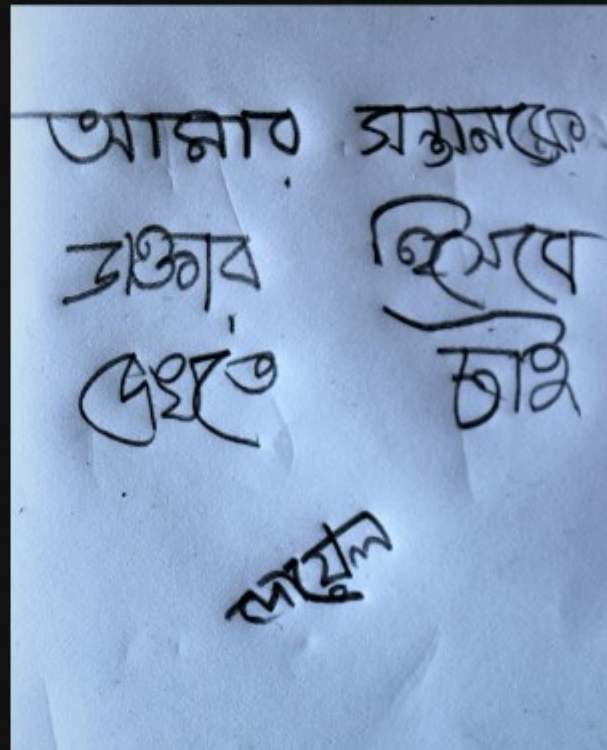 আমার সন্তানকে
ডাক্তার হিসেবে
দেখতে চাই